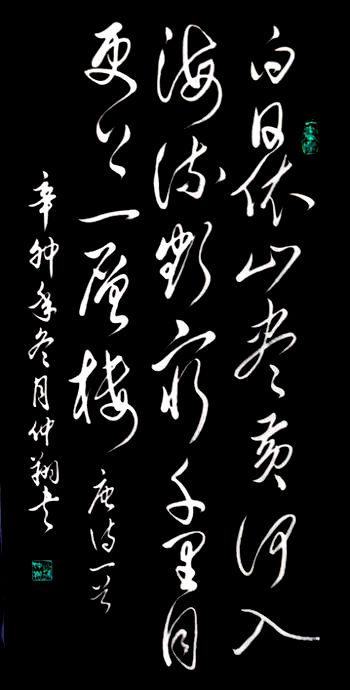 白日依山盡黄河入
海流欲窮千里目
更上一層樓 唐詩一首
辛卯年冬月仲翔書